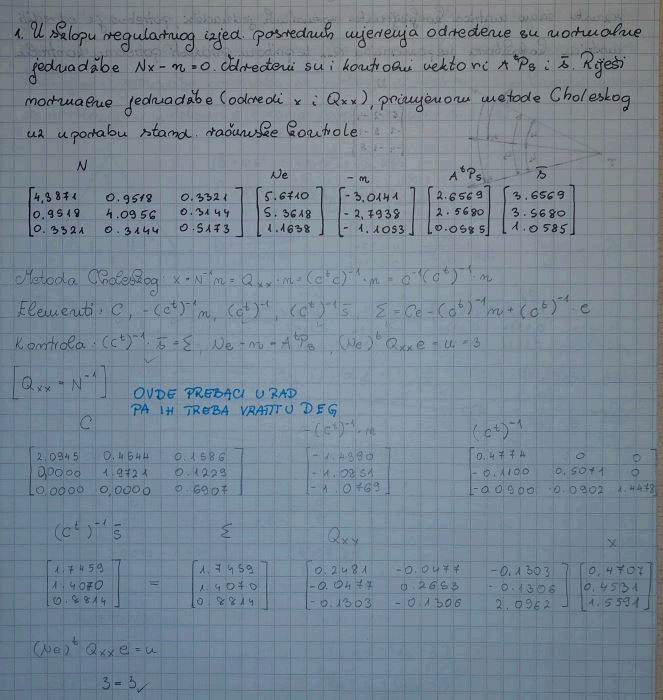 1. U sklopu regularnog izjed. posrednih mjerenja određene su normalne
jednadžbe Nx-n=0. Određeni su i kontrolni vektori AᵗPs i s̄. Riješi
normalne jednadžbe (odredi x i Qxx), primjenom metode Choleskog
uz uporabu stand. računske kontrole.
N Ne -n AᵗPs s̄
4,3871 0.9518 0.3321 5.6710 -3,0141 2.6569 3.6569
0,9518 4.0956 0.3144 5.3618 -2,7938 2.5680 3.5680
0.3321 0.3144 0.5173 1.1638 -1.1053 0.0585 1.0585
Metoda Choleskog: x = N⁻¹n = Qxx · n = (CᵗC)⁻¹ · n = C⁻¹(Cᵗ)⁻¹ · n
Elementi: C, -(Cᵗ)⁻¹n, (Cᵗ)⁻¹, (Cᵗ)⁻¹s̄, Σ = Ce - (Cᵗ)⁻¹n + (Cᵗ)⁻¹ · e
Kontrola: (Cᵗ)⁻¹ · s̄ = Σ, Ne - n = AᵗPs, (Ne)ᵗ Qxx e = u = 3
[Qxx = N⁻¹]
OVDE PREBACI U RAD
PA IH TREBA VRATIT U DEG
C -(Cᵗ)⁻¹ · n (Cᵗ)⁻¹
2,0945 0.4544 0.1586 -1.4390 0.4774 0 0
0,0000 1.9721 0.1229 -1.0851 -0.1100 0.5071 0
0,0000 0,0000 0.6907 -1.0769 -0.0900 -0.0902 1.4478
(Cᵗ)⁻¹ s̄ Σ Qxx x
1.7459 1.7459 0.2481 -0.0477 -0.1303 0,4707
1.4070 = 1.4070 -0.0477 0.2653 -0.1306 0.4531
0.8814 0.8814 -0.1303 -0.1306 2.0962 1.5591
(Ne)ᵗ Qxx e = u
3 = 3 ✓